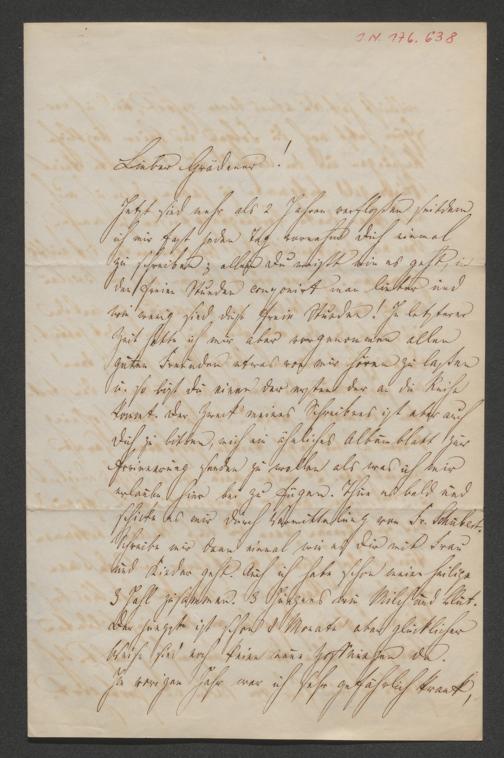 I N. 176.638
Lieber Grädener!
Jetzt sind mehr als 2 Jahren verflossen seitdem
ich mir fast jeden Tag vornahm Dich einmal
zu schreiben; allein Du weißt wie es geht, in
den freien Stunden componirt man lieber und
wie wenig sind diese freien Stunden! In letzterer
Zeit hatte ich mir aber vorgenommen allen
guten Freunden etwas von mir hören zu lassen
u. so bist Du einer der ersten der an die Reihe
kommt. Der Zweck meines Schreibens ist aber auch
Dich zu bitten, mich ein ähnliches Albumblatt zur
Erinnerung senden zu wollen als was ich mir
erlaube hier bei zu fügen. Thue es bald und
schicke es mir durch Vermittelung von Fr. Schubert.
Schreibe mir dann einmal wie es Dir mit Frau
und Kinder geht. Auch ich habe schon meine heilige
3 Zahl zusammen. 3 Jungens wie Milch und Blut.
Der jüngste ist schon 8 Monate aber glücklicher
Weise sind noch keine neue da.
Im vorigen Jahr war ich sehr gefährlich krank,